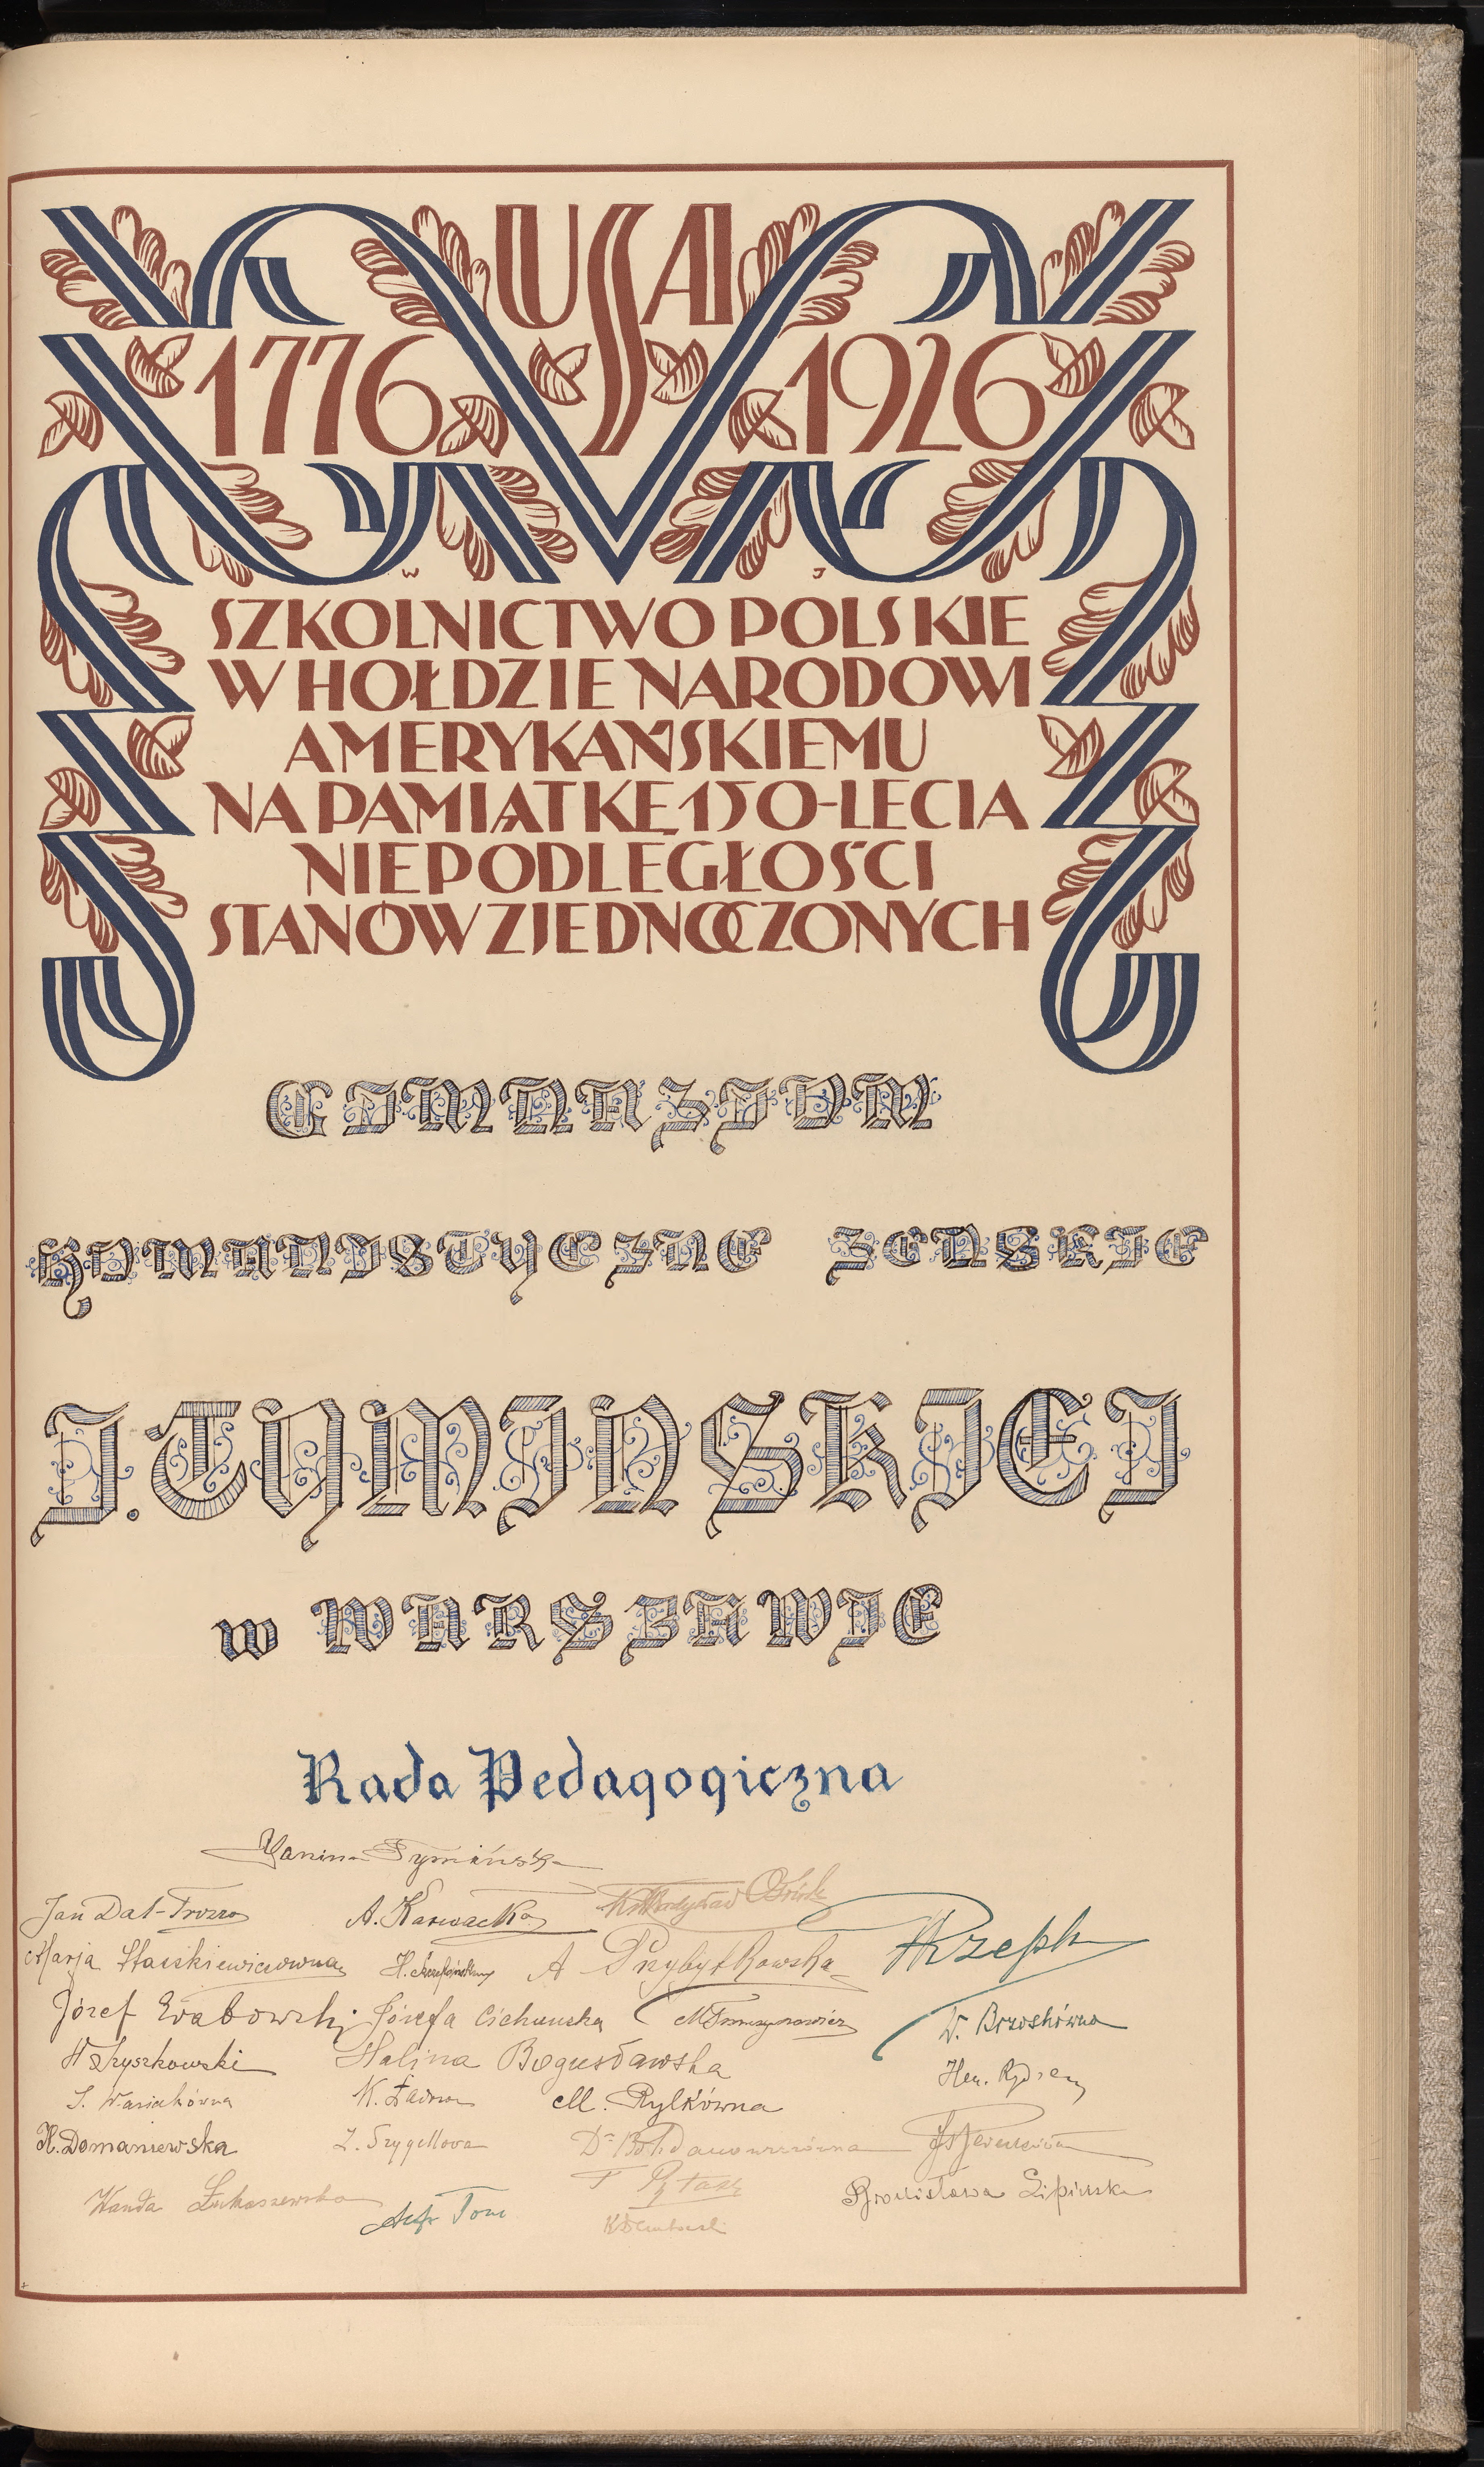 USA
1776 1926
W J
SZKOLNICTWO POLSKIE
W HOŁDZIE NARODOWI
AMERYKAŃSKIEMU
NA PAMIĄTKĘ 150-LECIA
NIEPODLEGŁOŚCI
STANÓW ZJEDNOCZONYCH
GIMNAZIUM
HUMANISTYCZNE ZENSKIE
J. TYMINSKIEJ
w WARSZAWIE
Rada Pedagogiczna
Janina Tymińska
Jan Dat-Trozzo A. Karwacka
Marja Staszkiewiczówna A Przybyłkowska Rzepk
Józef Grabowski Józefa Cichunska M Tomaszewicz W. Brzoskówna
H Skyszkowski Halina Bogusławska
S. Wasiakówna K. M. Rylkówna Hen.
H. Domaniewska Z. Szygellowa Dr Bohdanowiczówna
Wanda Łukaszewska T Ptak Bronisława Lipinska